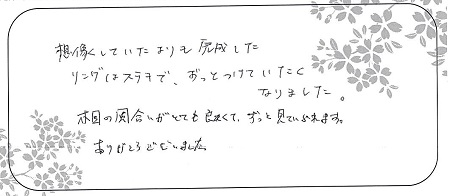 想像していたよりも完成した
リングはステキで、ずっとつけていたく
なりました。
木目の風合いがとても良くて、ずっと見ていられます。
ありがとうございました。